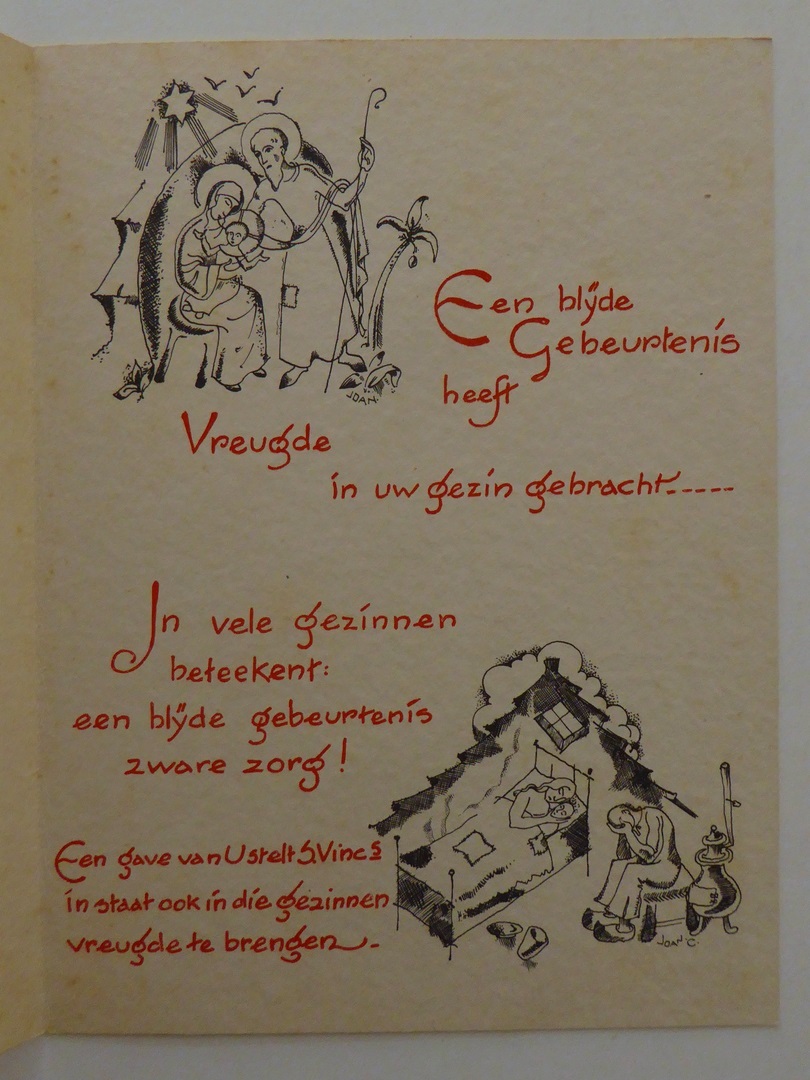 JOAN.
Een blijde
Gebeurtenis
heeft
Vreugde
in uw gezin gebracht-----
In vele gezinnen
beteekent:
een blijde gebeurtenis
zware zorg!
Een gave van U stelt S. Vincs
in staat ook in die gezinnen
vreugde te brengen -
JOAN C.